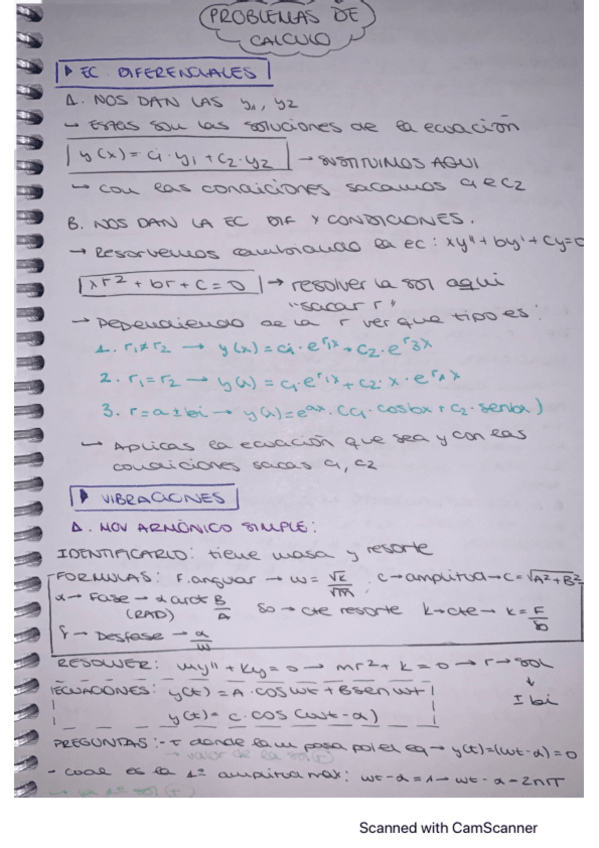 PROBLEMAS DE
CALCULO
▶ EC DIFERENCIALES
A. NOS DAN LAS y₁, y₂
→ Estas son las soluciones de la ecuación
y(x) = c₁·y₁ + c₂·y₂ → SUSTITUIMOS AQUI
→ con las condiciones sacamos c₁ e c₂
B. NOS DAN LA EC DIF Y CONDICIONES.
→ Resolvemos cambiando la ec: xy'' + by' + cy = 0
xr² + br + c = 0 → resolver la sol aqui
"sacar r"
→ Dependiendo de la r ver que tipo es:
1. r₁ ≠ r₂ → y(x) = c₁·e^r₁x + c₂·e^r₂x
2. r₁ = r₂ → y(x) = c₁·e^r₁x + c₂·x·e^r₂x
3. r = a ± bi → y(x) = e^ax·(c₁·cosbx + c₂·senbx)
→ Aplicas la ecuación que sea y con las
condiciones sacas c₁, c₂
▶ VIBRACIONES
A. MOV ARMÓNICO SIMPLE:
IDENTIFICARLO: tiene masa y resorte
FORMULAS: F.anguar → w = √k/√m . C → amplitud → C = √A²+B²
α → Fase → α arct B/A So → cte resorte k → cte → k = F/So
(RAD)
→ Desfase → α/w
RESOLVER: my'' + Ky = 0 → mr² + k = 0 → r → sol
↓
ECUACIONES: y(t) = A·cos wt + B sen wt
± bi
y(t) = C·cos (wt - α)
PREGUNTAS: - t donde la m pasa por el eq → y(t) = (wt - α) = 0
→ valor de la
- cual es la 1ª amplitud max: wt - α = 1 → wt - α = 2nπ
Scanned with CamScanner